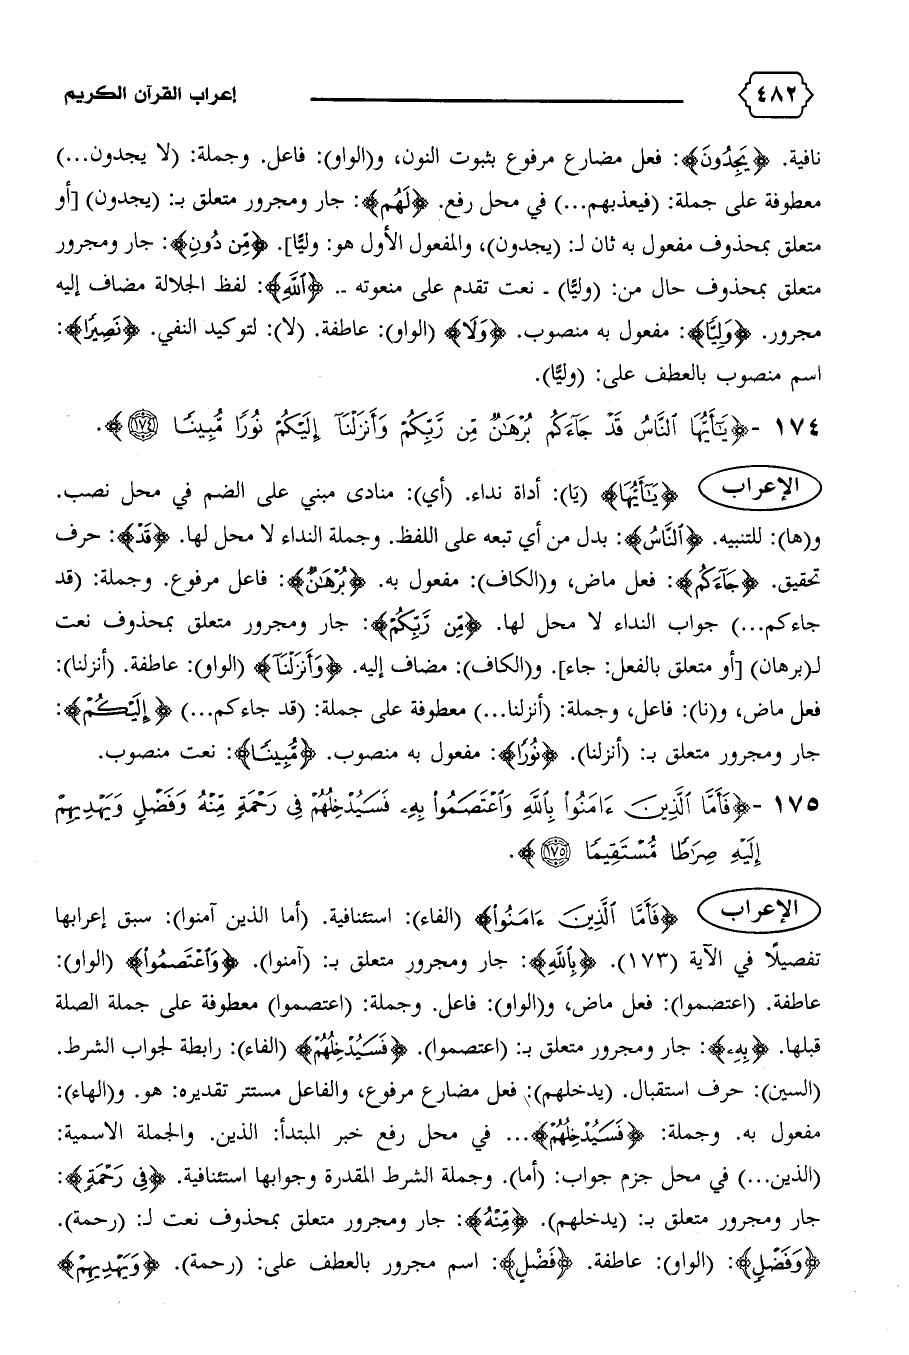 ٤٨٢ إعراب القرآن الكريم
نافية. ﴿يَجِدُونَ﴾: فعل مضارع مرفوع بثبوت النون، و(الواو): فاعل. وجملة: (لا يجدون...)
معطوفة على جملة: (فيعذبهم...) في محل رفع. ﴿لَهُم﴾: جار ومجرور متعلق بـ: (يجدون) [أو
متعلق بمحذوف مفعول به ثان لـ: (يجدون)، والمفعول الأول هو: وليًّا]. ﴿مِّن دُونِ﴾: جار ومجرور
متعلق بمحذوف حال من: (وليًّا) ـ نعت تقدم على منعوته ـ. ﴿ٱللَّهِ﴾: لفظ الجلالة مضاف إليه
مجرور. ﴿وَلِيًّا﴾: مفعول به منصوب. ﴿وَلَا﴾ (الواو): عاطفة. (لا): لتوكيد النفي. ﴿نَصِيرًا﴾:
اسم منصوب بالعطف على: (وليًّا).
١٧٤ -﴿يَٰٓأَيُّهَا ٱلنَّاسُ قَدْ جَآءَكُم بُرْهَٰنٌ مِّن رَّبِّكُمْ وَأَنزَلْنَآ إِلَيْكُمْ نُورًا مُّبِينًا ١٧٤﴾.
الإعراب ﴿يَٰٓأَيُّهَا﴾ (يَا): أداة نداء. (أي): منادى مبني على الضم في محل نصب.
و(ها): للتنبيه. ﴿ٱلنَّاسُ﴾: بدل من أي تبعه على اللفظ. وجملة النداء لا محل لها. ﴿قَدْ﴾: حرف
تحقيق. ﴿جَآءَكُم﴾: فعل ماض، و(الكاف): مفعول به. ﴿بُرْهَٰنٌ﴾: فاعل مرفوع. وجملة: (قد
جاءكم...) جواب النداء لا محل لها. ﴿مِّن رَّبِّكُمْ﴾: جار ومجرور متعلق بمحذوف نعت
لـ(برهان) [أو متعلق بالفعل: جاء]. و(الكاف): مضاف إليه. ﴿وَأَنزَلْنَآ﴾ (الواو): عاطفة. (أنزلنا):
فعل ماض، و(نا): فاعل، وجملة: (أنزلنا...) معطوفة على جملة: (قد جاءكم...) ﴿إِلَيْكُمْ﴾:
جار ومجرور متعلق بـ: (أنزلنا). ﴿نُورًا﴾: مفعول به منصوب. ﴿مُّبِينًا﴾: نعت منصوب.
١٧٥ -﴿فَأَمَّا ٱلَّذِينَ ءَامَنُوا۟ بِٱللَّهِ وَٱعْتَصَمُوا۟ بِهِۦ فَسَيُدْخِلُهُمْ فِى رَحْمَةٍ مِّنْهُ وَفَضْلٍ وَيَهْدِيهِمْ
إِلَيْهِ صِرَٰطًا مُّسْتَقِيمًا ١٧٥﴾.
الإعراب ﴿فَأَمَّا ٱلَّذِينَ ءَامَنُوا۟﴾ (الفاء): استئنافية. (أما الذين آمنوا): سبق إعرابها
تفصيلًا في الآية (١٧٣). ﴿بِٱللَّهِ﴾: جار ومجرور متعلق بـ: (آمنوا). ﴿وَٱعْتَصَمُوا۟﴾ (الواو):
عاطفة. (اعتضموا): فعل ماض، و(الواو): فاعل. وجملة: (اعتصموا) معطوفة على جملة الصلة
قبلها. ﴿بِهِۦ﴾: جار ومجرور متعلق بـ: (اعتصموا). ﴿فَسَيُدْخِلُهُمْ﴾ (الفاء): رابطة لجواب الشرط.
(السين): حرف استقبال. (يدخلهم): فعل مضارع مرفوع، والفاعل مستتر تقديره: هو. و(الهاء):
مفعول به. وجملة: ﴿فَسَيُدْخِلُهُمْ﴾... في محل رفع خبر المبتدأ: الذين. والجملة الاسمية:
(الذين...) في محل جزم جواب: (أما). وجملة الشرط المقدرة وجوابها استئنافية. ﴿فِى رَحْمَةٍ﴾:
جار ومجرور متعلق بـ: (يدخلهم). ﴿مِّنْهُ﴾: جار ومجرور متعلق بمحذوف نعت لـ: (رحمة).
﴿وَفَضْلٍ﴾: (الواو): عاطفة. ﴿فَضْلٍ﴾: اسم مجرور بالعطف على: (رحمة). ﴿وَيَهْدِيهِمْ﴾